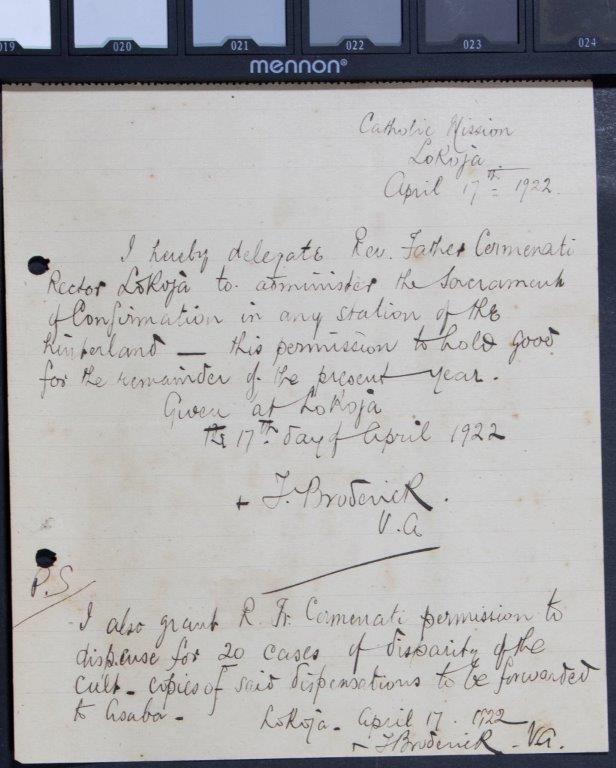 019 020 021 022 023 024
mennon®
Catholic Mission
Lokoja
April 17th 1922.
I hereby delegate Rev. Father Cermenati
Rector Lokoja to administer the Sacrament
of Confirmation in any station of the
hinterland — this permission to hold good
for the remainder of the present year.
Given at Lokoja
the 17th day of April 1922
+ T. Broderick.
V.A
P.S
I also grant R. Fr. Cermenati permission to
dispense for 20 cases of disparity of the
cult - copies of said dispensations to be forwarded
to Asaba -
Lokoja - April 17. 1922
+ T Broderick - V.A.